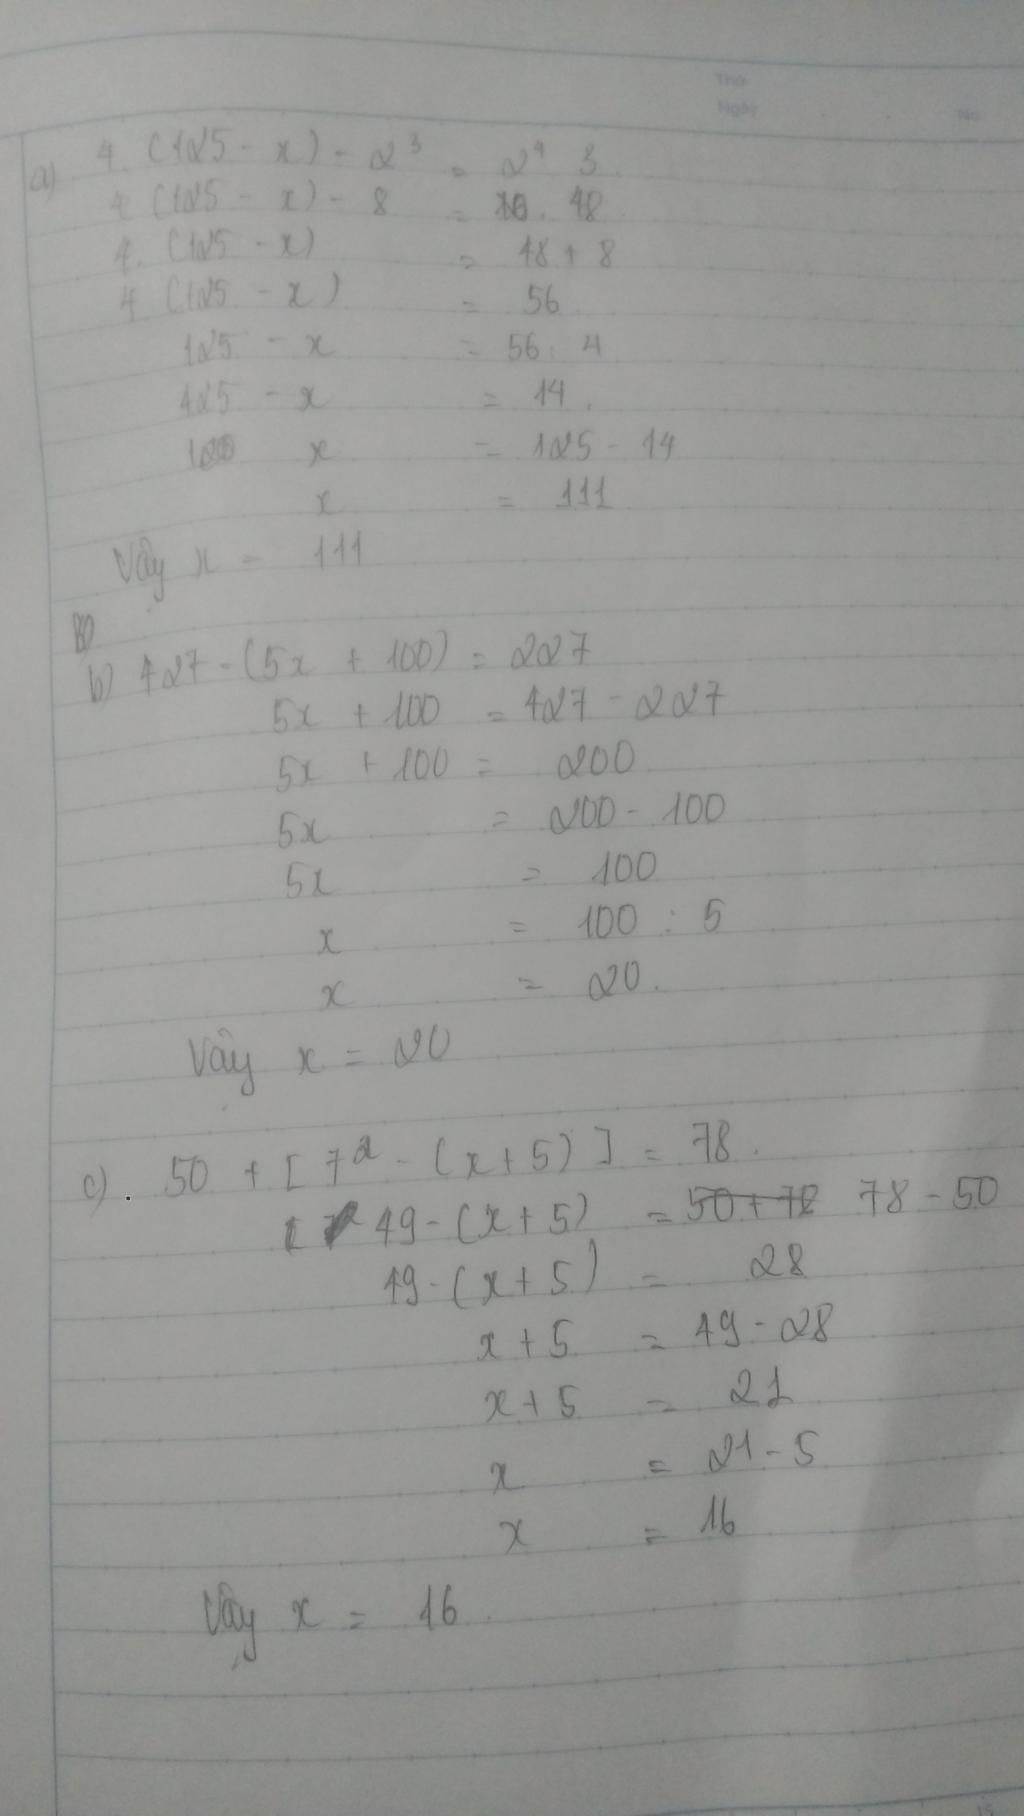 Thứ
Ngày
No.
a) 4. (125 - x) - 2³ = 2⁴ 3
4 (125 - x) - 8 = 16. 48
4. (125 - x) = 48 + 8
4 (125 - x) = 56
125 - x = 56 : 4
125 - x = 14.
x = 125 - 14
x = 111
Vậy x = 111
b) 427 - (5x + 100) = 227
5x + 100 = 427 - 227
5x + 100 = 200
5x = 200 - 100
5x = 100
x = 100 : 5
x = 20.
Vậy x = 20
c). 50 + [7² - (x + 5)] = 78.
49 - (x + 5) = 50 + 78 78 - 50
49 - (x + 5) = 28
x + 5 = 49 - 28
x + 5 = 21
x = 21 - 5
x = 16
Vậy x = 16